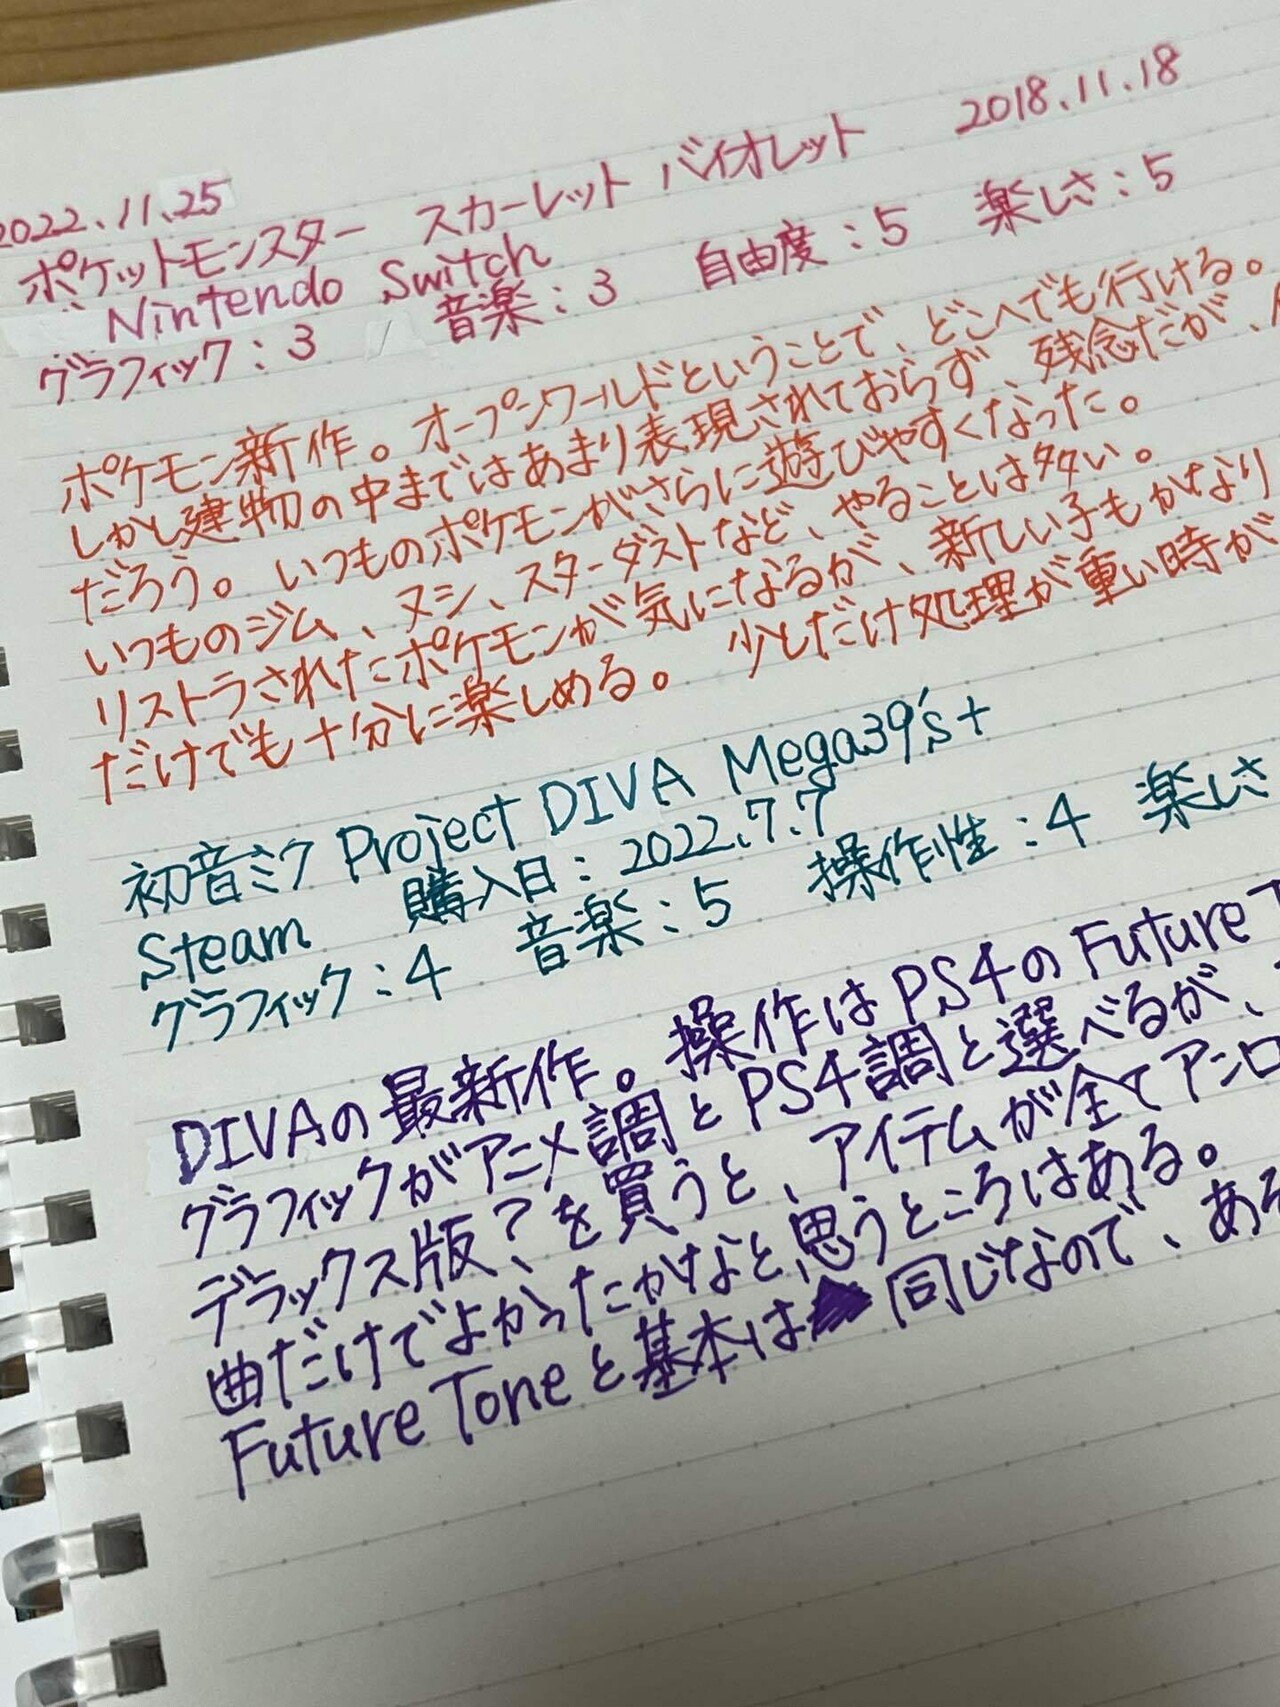 2022.11.25
ポケットモンスター スカーレット バイオレット 2018.11.18
Nintendo Switch
グラフィック:3 音楽:3 自由度:5 楽しさ:5
ポケモン新作。オープンワールドということで、どこへでも行ける。
しかし建物の中まではあまり表現されておらず、残念だが、
だろう。いつものポケモンがさらに遊びやすくなった。
いつものジム、ヌシ、スターダストなど、やることは多い。
リストラされたポケモンが気になるが、新しい子もかなり
だけでも十分に楽しめる。少しだけ処理が重い時が
初音ミク Project DIVA Mega39's+
Steam 購入日:2022.7.7
グラフィック:4 音楽:5 操作性:4 楽しさ
DIVAの最新作。操作はPS4のFuture T
グラフィックがアニメ調とPS4調と選べるが、
デラックス版?を買うと、アイテムが全てアンロ
曲だけでよかったかなと思うところはある。
Future Toneと基本は同じなので、あそ